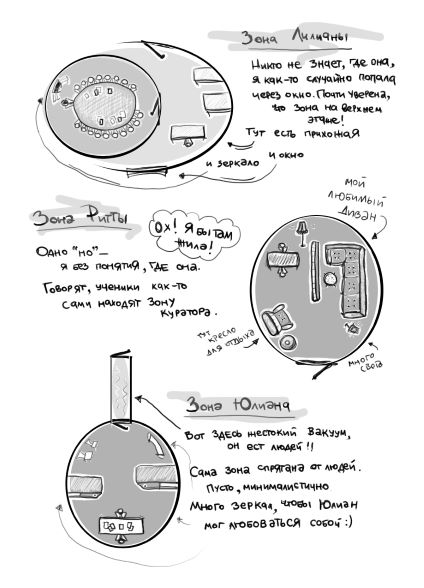 Зона Лилианы
Никто не знает, где она,
я как-то случайно попала
через окно. Почти уверена,
что зона на верхнем
этаже!
Тут есть прихожая
и зеркало и окно
мой
любимый
диван
Зона Ритты
Ох! Я бы там
жила!
Одно "но" —
я без понятия, где она.
Говорят, ученики как-то
сами находят зону
куратора.
тут
кресло
для отдыха
много
света
Зона Юлиана
Вот здесь жестокий вакуум,
он ест людей!!
Сама зона спрятана от людей.
Пусто, минималистично
Много зеркал, чтобы Юлиан
мог любоваться собой :)